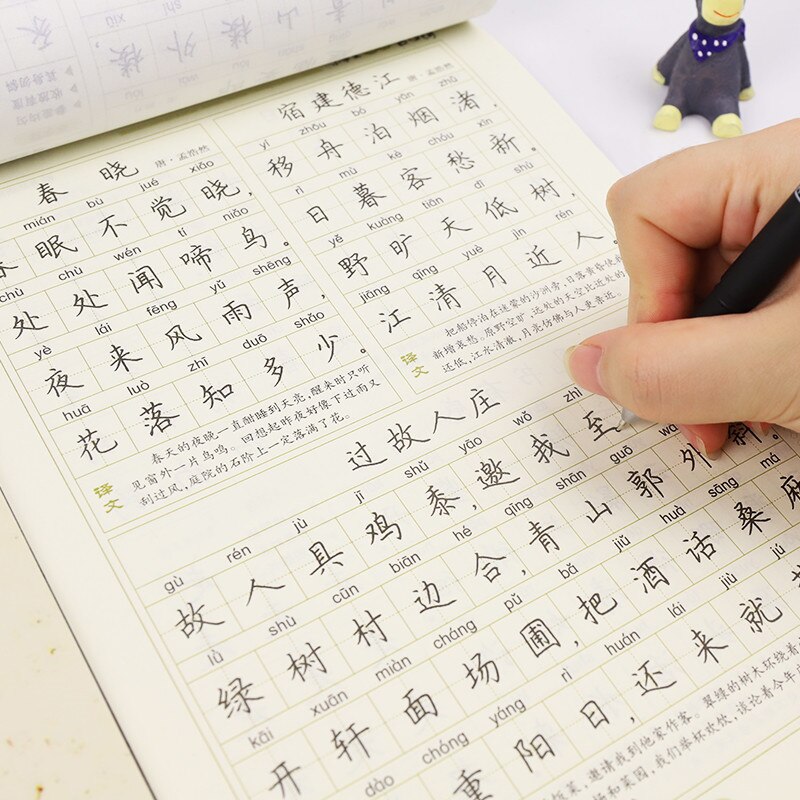 春晓 唐·孟浩然
mián bù jué xiǎo
眠不觉晓，
chù chù wén tí niǎo
处处闻啼鸟。
yè lái fēng yǔ shēng
夜来风雨声，
huā luò zhī duō shǎo
花落知多少。
译文
春天的夜晚一直甜睡到天亮，醒来时只听
见窗外一片鸟鸣。回想起昨夜好像下过雨又
刮过风，庭院的石阶上一定落满了花。
宿建德江 唐·孟浩然
yí zhōu bó yān zhǔ
移舟泊烟渚，
rì mù kè chóu xīn
日暮客愁新。
yě kuàng tiān dī shù
野旷天低树，
jiāng qīng yuè jìn rén
江清月近人。
译文
把船停泊在迷蒙的沙洲旁，日落黄昏使我
新增哀愁。原野空旷，远处的天空比近处的
还低，江水清澈，月亮仿佛与人更亲近。
过故人庄
gù rén jù jī shǔ yāo wǒ
故人具鸡黍，邀我至
lǜ shù cūn biān hé qīng shān guō
绿树村边合，青山郭外斜。
kāi xuān miàn cháng pǔ bǎ jiǔ huà sāng má
开轩面场圃，把酒话桑麻
dào chóng yáng rì huán lái jiù jú
重阳日，还来就
饭菜，邀请我到他家作客。翠绿的树木环绕着
场和菜园，我们举杯欢饮，谈论着今年